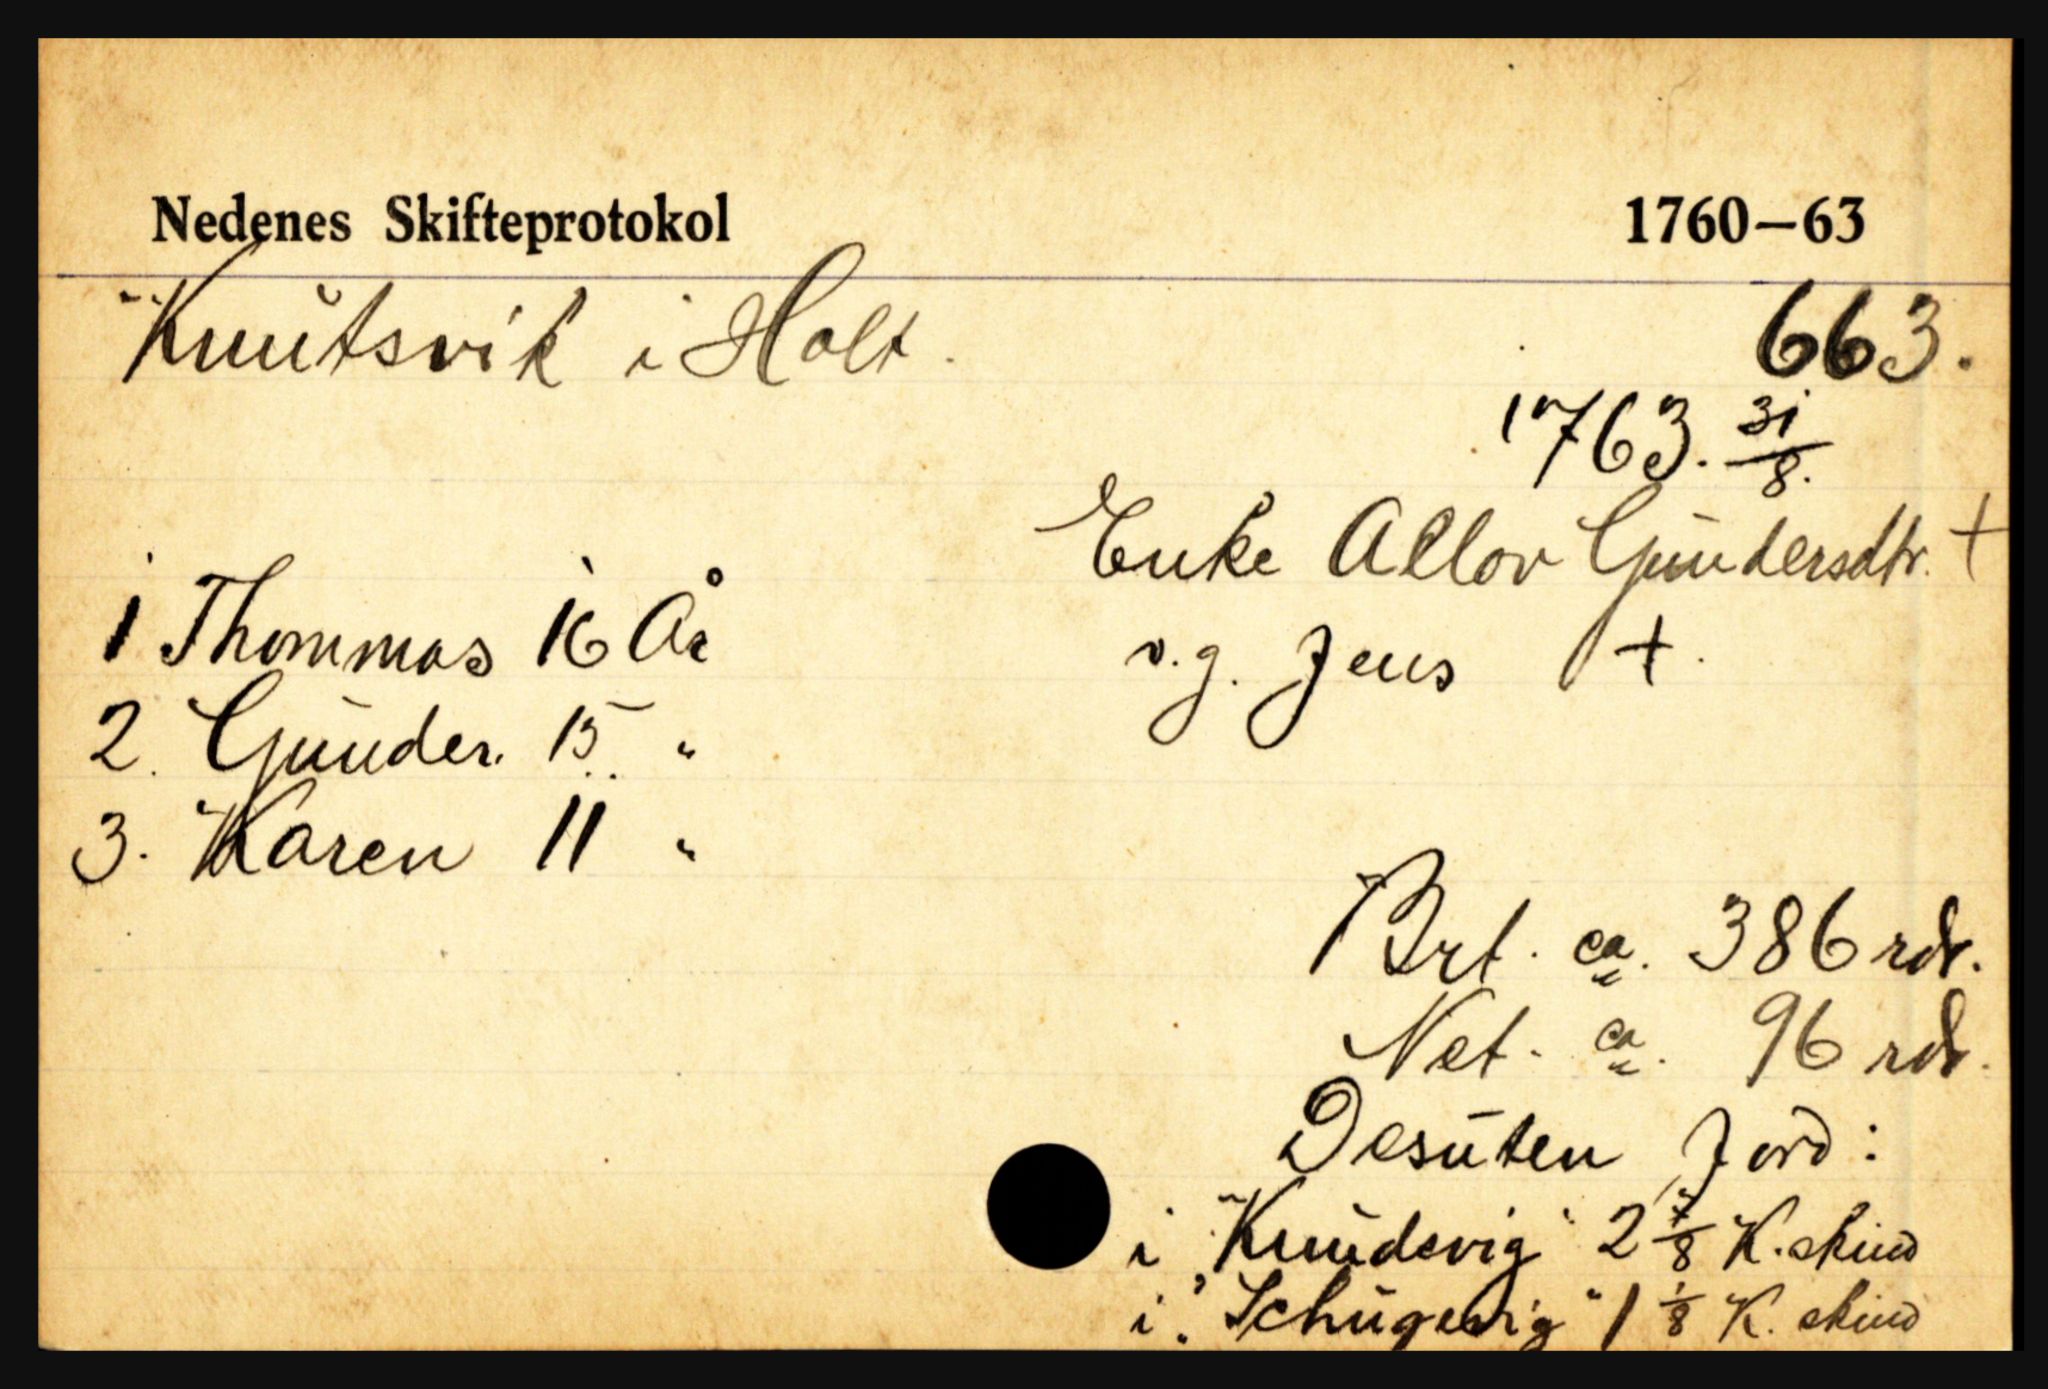 Nedenes Skifteprotokol 1760–63
Knutsvik i Holt.
663.
1763. 31/8.
Enke Allov Gundersdtr. +
1 Thommas 16 År
v.g. Jens +.
2. Gunder. 15 "
3. Karen 11 "
Brt. ca. 386 rdr.
Net. ca. 96 rdr.
Desuten Jord:
i "Knudsvig" 2 7/8 K. skind
i "Schugevig" 1 1/8 K. skind